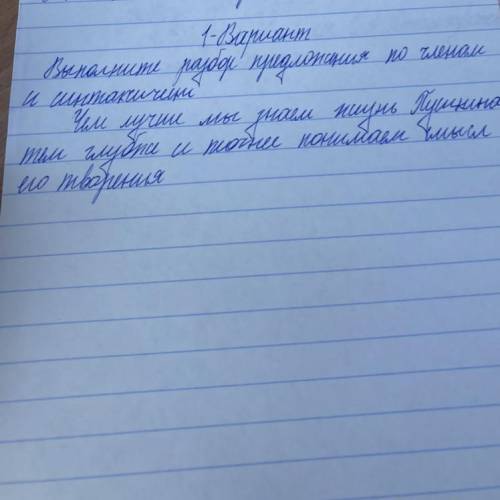 1-Вариант
Выполните разбор предложения по членам
и синтаксичени
Чем лучше мы знаем жизнь Пушкина
тем глубже и точнее понимаем смысл
его творения